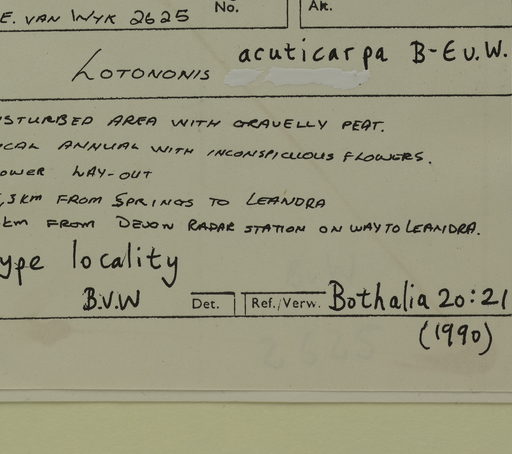 E. VAN WYK 2625 No. Ak.
LOTONONIS acuticarpa B-E v.W.
STURBED AREA WITH GRAVELLY PEAT.
CAL ANNUAL WITH INCONSPICUOUS FLOWERS.
OWER LAY-OUT
,5 KM FROM SPRINGS TO LEANDRA
KM FROM DEVON RADAR STATION ON WAY TO LEANDRA.
ype locality
B.V.W Det. Ref./Verw. Bothalia 20:21
(1990)